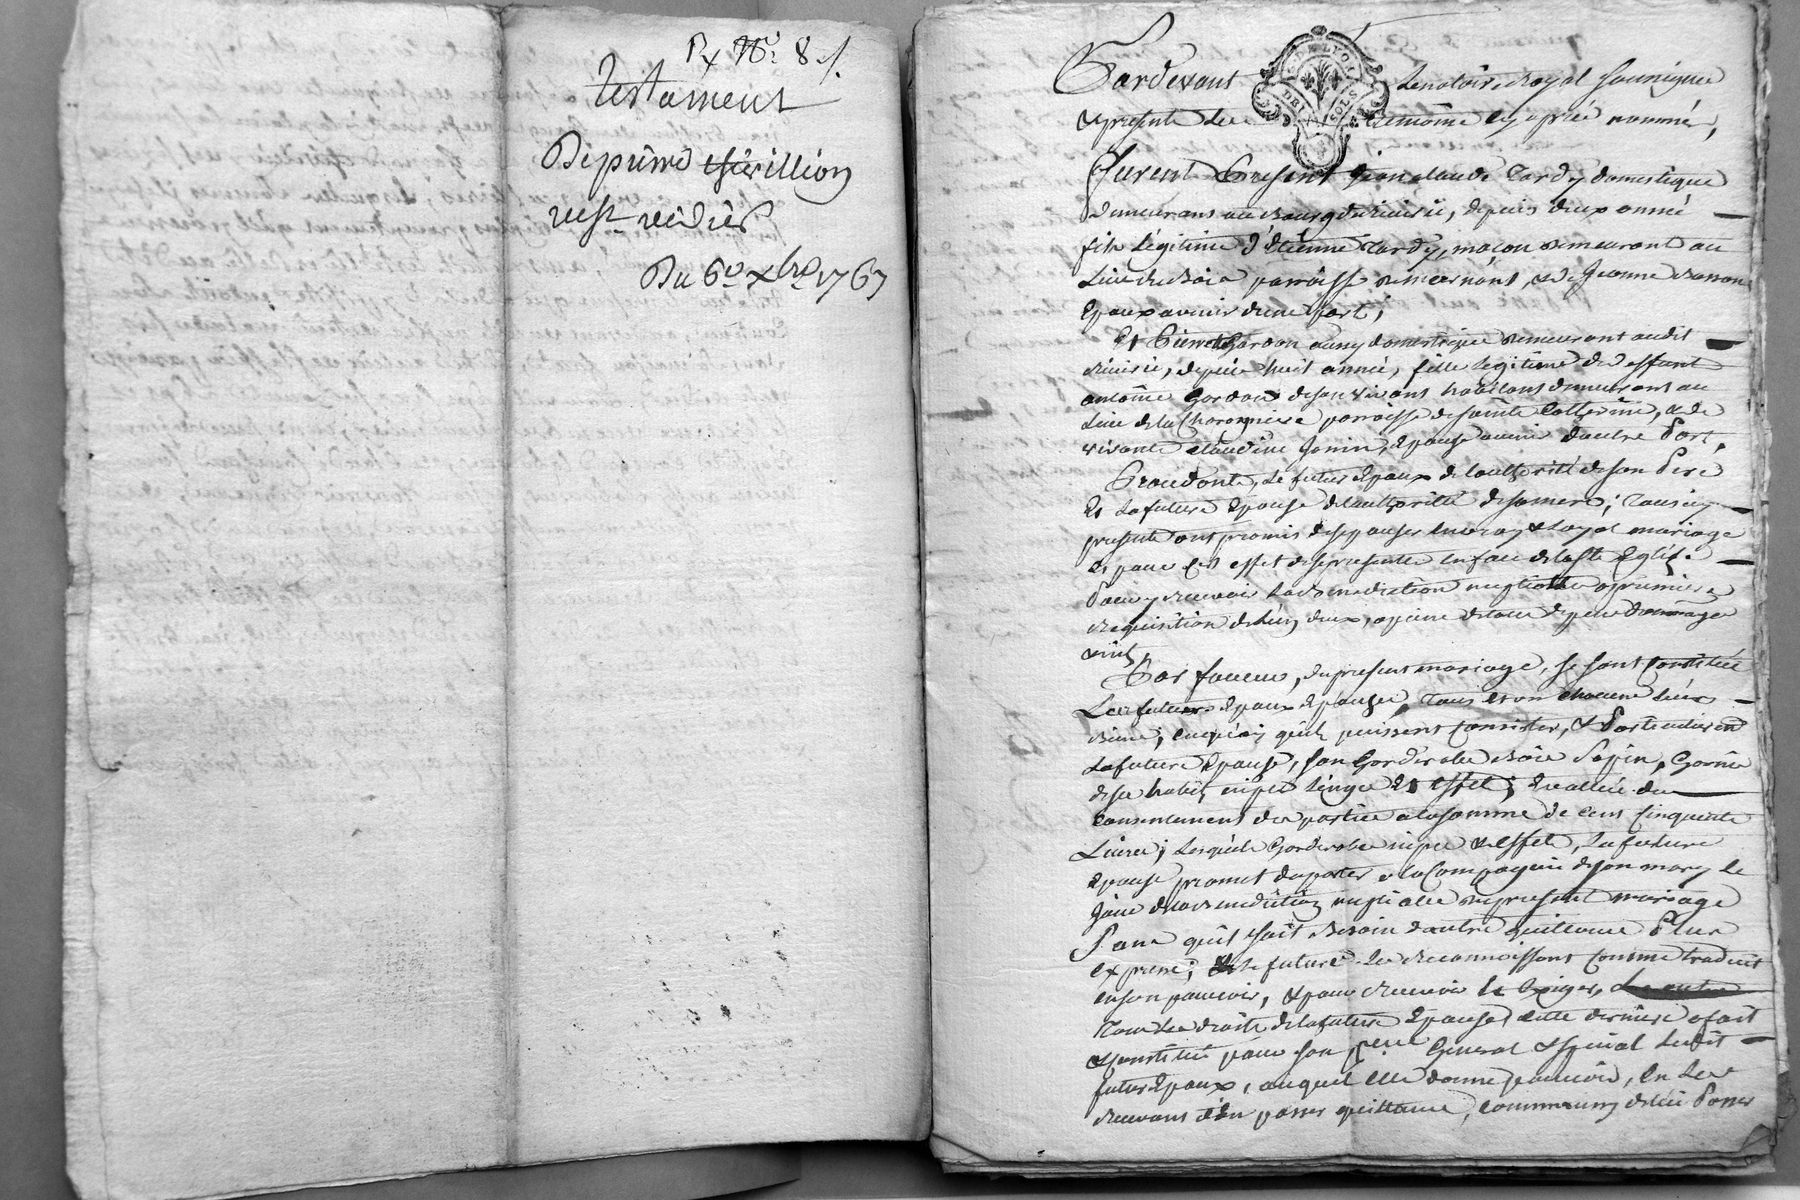 Testament
De pierre
Du 6e xbre 1767
Pardevant Le notoire Royal soussigne
& presents Les temoins cy aprés nommés,
G. DE LYON
DEUX SOLS
Furent Presents Jean claude Tardy domestique
demeurans au Bourg de Riverie, depuis deux année
fils Légitime d'Etienne Tardy, macon demeurant au
Lieu du Bois parroisse de mornant, & de Jeanne
Epoux avenir d'une part;
Et Pierrette Gordon aussy domestique demeurant audit
Riverie, depuis huit année, fille Légitime de deffunt
antoine Gordon de son vivant habitant demeurans au
Lieu de la parroisse de sainte Catherine, & de
vivante claudine Jonin, Epouse avenir d'autre Part.
Procedants, Le futur Epoux de l'authorité de son Pere
Et La future Epouse de l'authorité de sa mere; Tous icy
presents ont promis de s'epouser en vray & Loyal mariage
Et pour cet effet de se presenter en face de la Ste Eglise
Pour y recevoir La Benediction nuptiale a premiere
Requisition de l'un d'eux, a peine de tous depens dommages
Par faveur, du present mariage, se sont Constitués
Les futurs Epoux Epouse, Tous et un chacuns Leurs
Biens, en quoy qu'ils puissent Consister, & Particulierement
La future Epouse, son Garderobe Bois Sapin, Garnie
de ses habits, nipes Linges Et Effets, Evalués du
Consentement des parties a la somme de Cent Cinquante
Livres; Lesquels Garderobe nipes & Effets, La future
Epouse promet d'aporter a la Compagnie de son mary Le
Jour de la Benediction nuptiale du present mariage
Sans qu'il soit Besoin d'autre quittance Plus
expresse; Le futur Les Reconnoissant Comme traduits
en son pouvoir, & pour Recevoir & Exiger,
Tous Les droits de la future Epouse, cette derniere a fait
& Constitué pour son General & special Ledit
futur Epoux, auquel Elle donne pouvoir, En Les
Recevant d'En passer quittance,